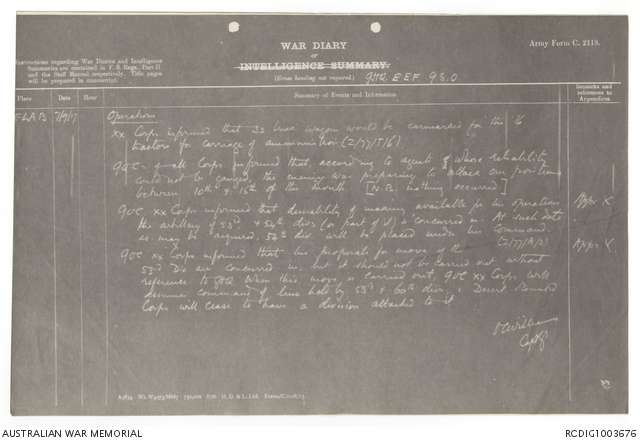 WAR DIARY
OF
INTELLIGENCE SUMMARY.
(Erase heading not required.)
GHQ EEF GSO
Army Form C. 2118.
Instructions regarding War Diaries and Intelligence
Summaries are contained in F. S. Regs., Part II
and the Staff Manual respectively. Title pages
will be prepared in manuscript.
Place
Date
Hour
Summary of Events and Information
Remarks and
references to
Appendices
7/9/17
Operations
XX Corps informed that 32 wagons would be earmarked for the
tractors for carriage of ammunition
all Corps informed that according to agent of whose reliability
could not be gauged, the enemy was preparing to attack our positions
between 10th & 15th of the month. [N.B. nothing occurred]
GOC XX Corps informed that desirability of making available for his operations
the artillery of 53rd & 54th divs (or part of it) is concurred in. At such date
as may be required, 54th div. will be placed under his command.
Appx X
GOC XX Corps informed that his proposal for move of the
53rd Div are concurred in but it should not be carried out without
reference to GHQ. When this move is carried out, GOC XX Corps will
assume command of line held by 53rd & 60th divs, & Desert Mounted
Corps will cease to have a division attached to it
Capt
AUSTRALIAN WAR MEMORIAL
RCDIG1003676